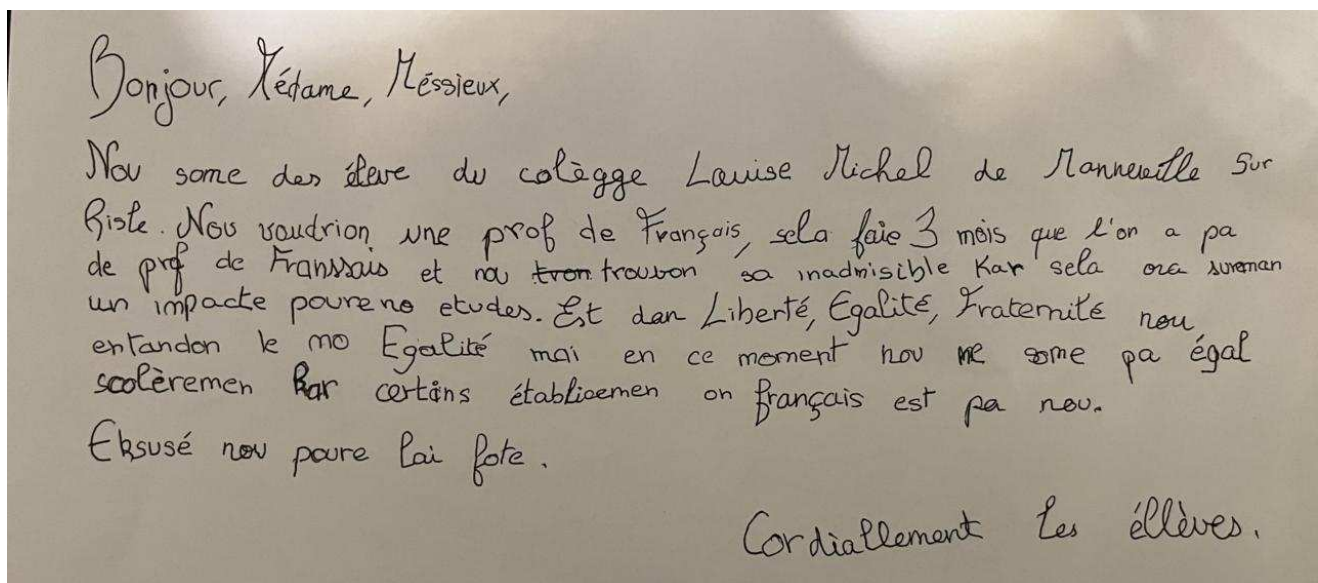 Bonjour, Médame, Méssieux,
Nou some des éleve du colègge Lauise Michel de Manneville Sur
Risle. Nous voudrion une prof de Français, sela faie 3 mois que l'on a pa
de prof de Franssais et nou tron trouvon sa inadmisible Kar sela ora sureman
un impacte poure no etudes. Est dan Liberté, Egalité, Fraternité nou
entandon le mo Egalité mai en ce moment nou ne some pa égal
scolèremen Kar certins établicemen on français est pa nou.
Eksusé nou poure lai fote.
Cordiallement les éllèves.